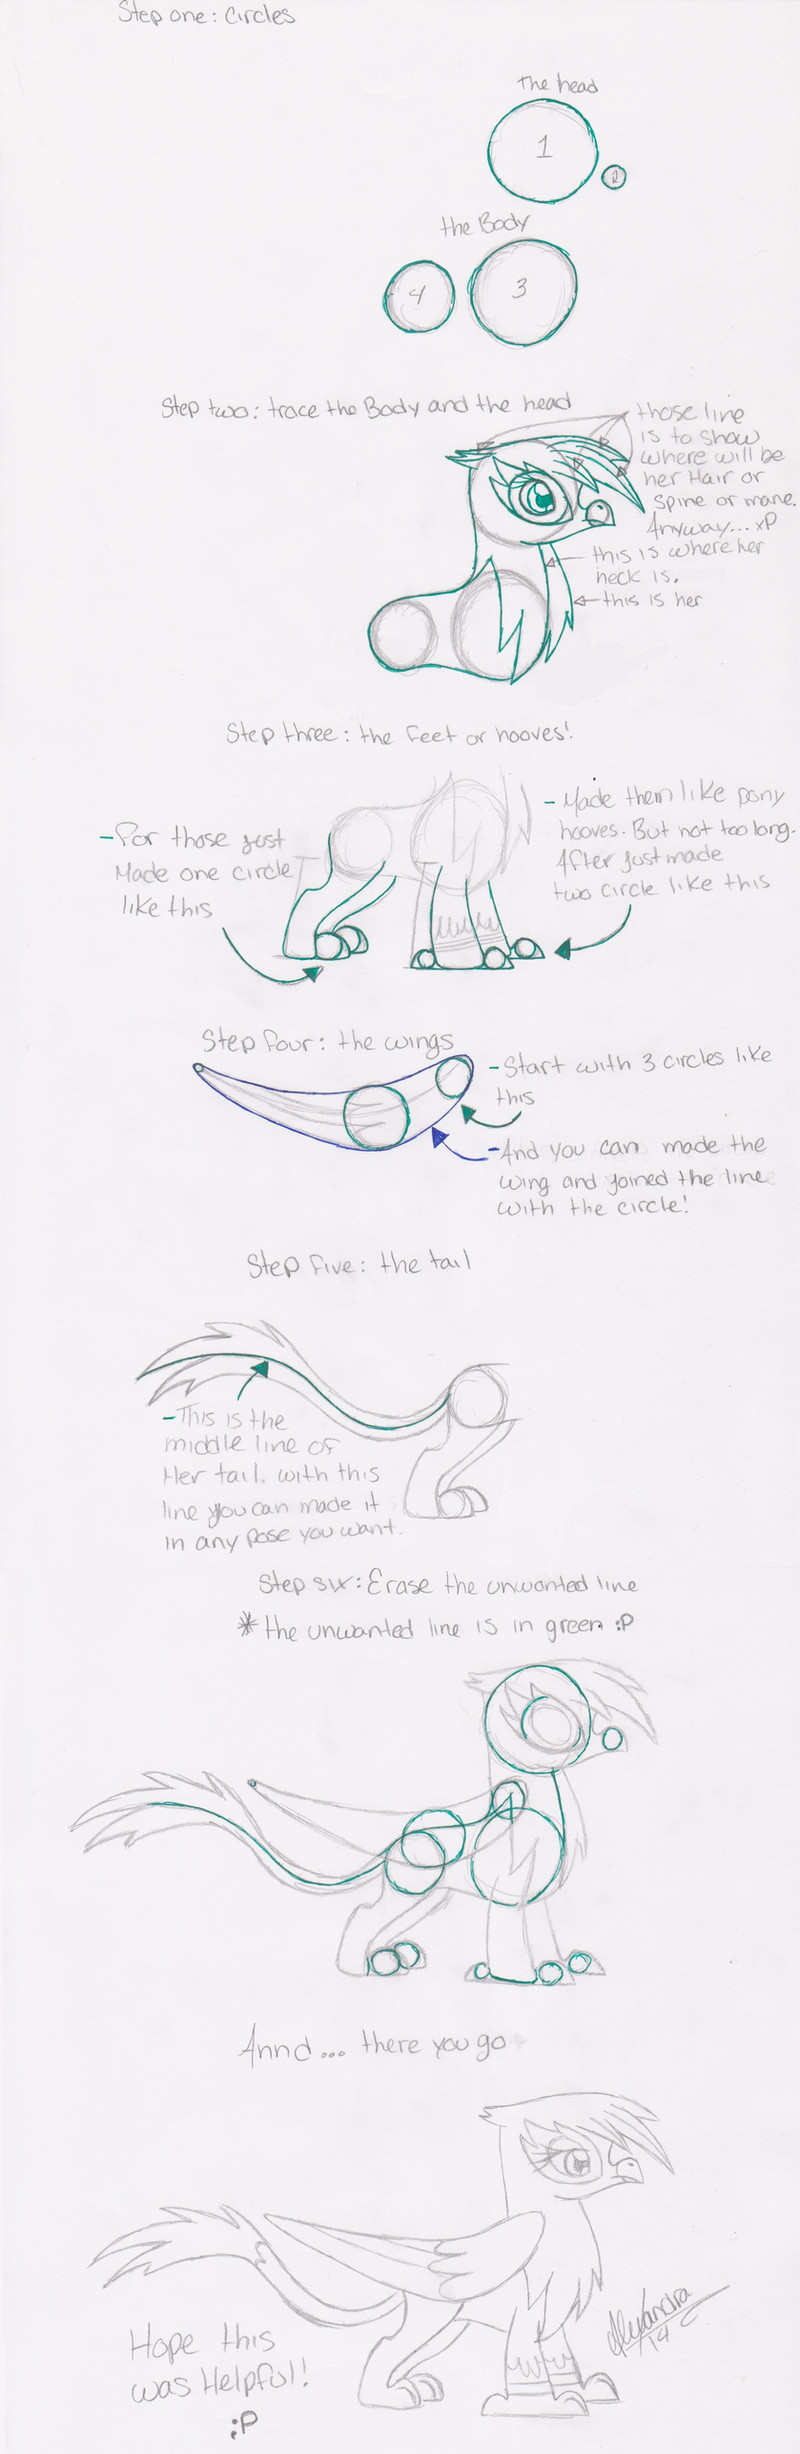 Step one: Circles
the head
1
2
the Body
4
3
Step two: trace the Body and the head
those line
is to show
where will be
her Hair or
Spine or mane.
Anyway... xP
this is where her
neck is.
this is her
Step three: the feet or hooves!
- For those just
Made one circle
like this
- Made them like pony
hooves. But not too long.
After just made
two circle like this
Step four: the wings
- Start with 3 circles like
this
- And you can made the
wing and joined the line
with the circle!
Step five: the tail
- This is the
middle line of
Her tail. with this
line you can made it
in any pose you want.
Step six: Erase the unwanted line
* the unwanted line is in green :P
Annd... there you go
Alexandra
14 C
Hope this
was Helpful!
;P